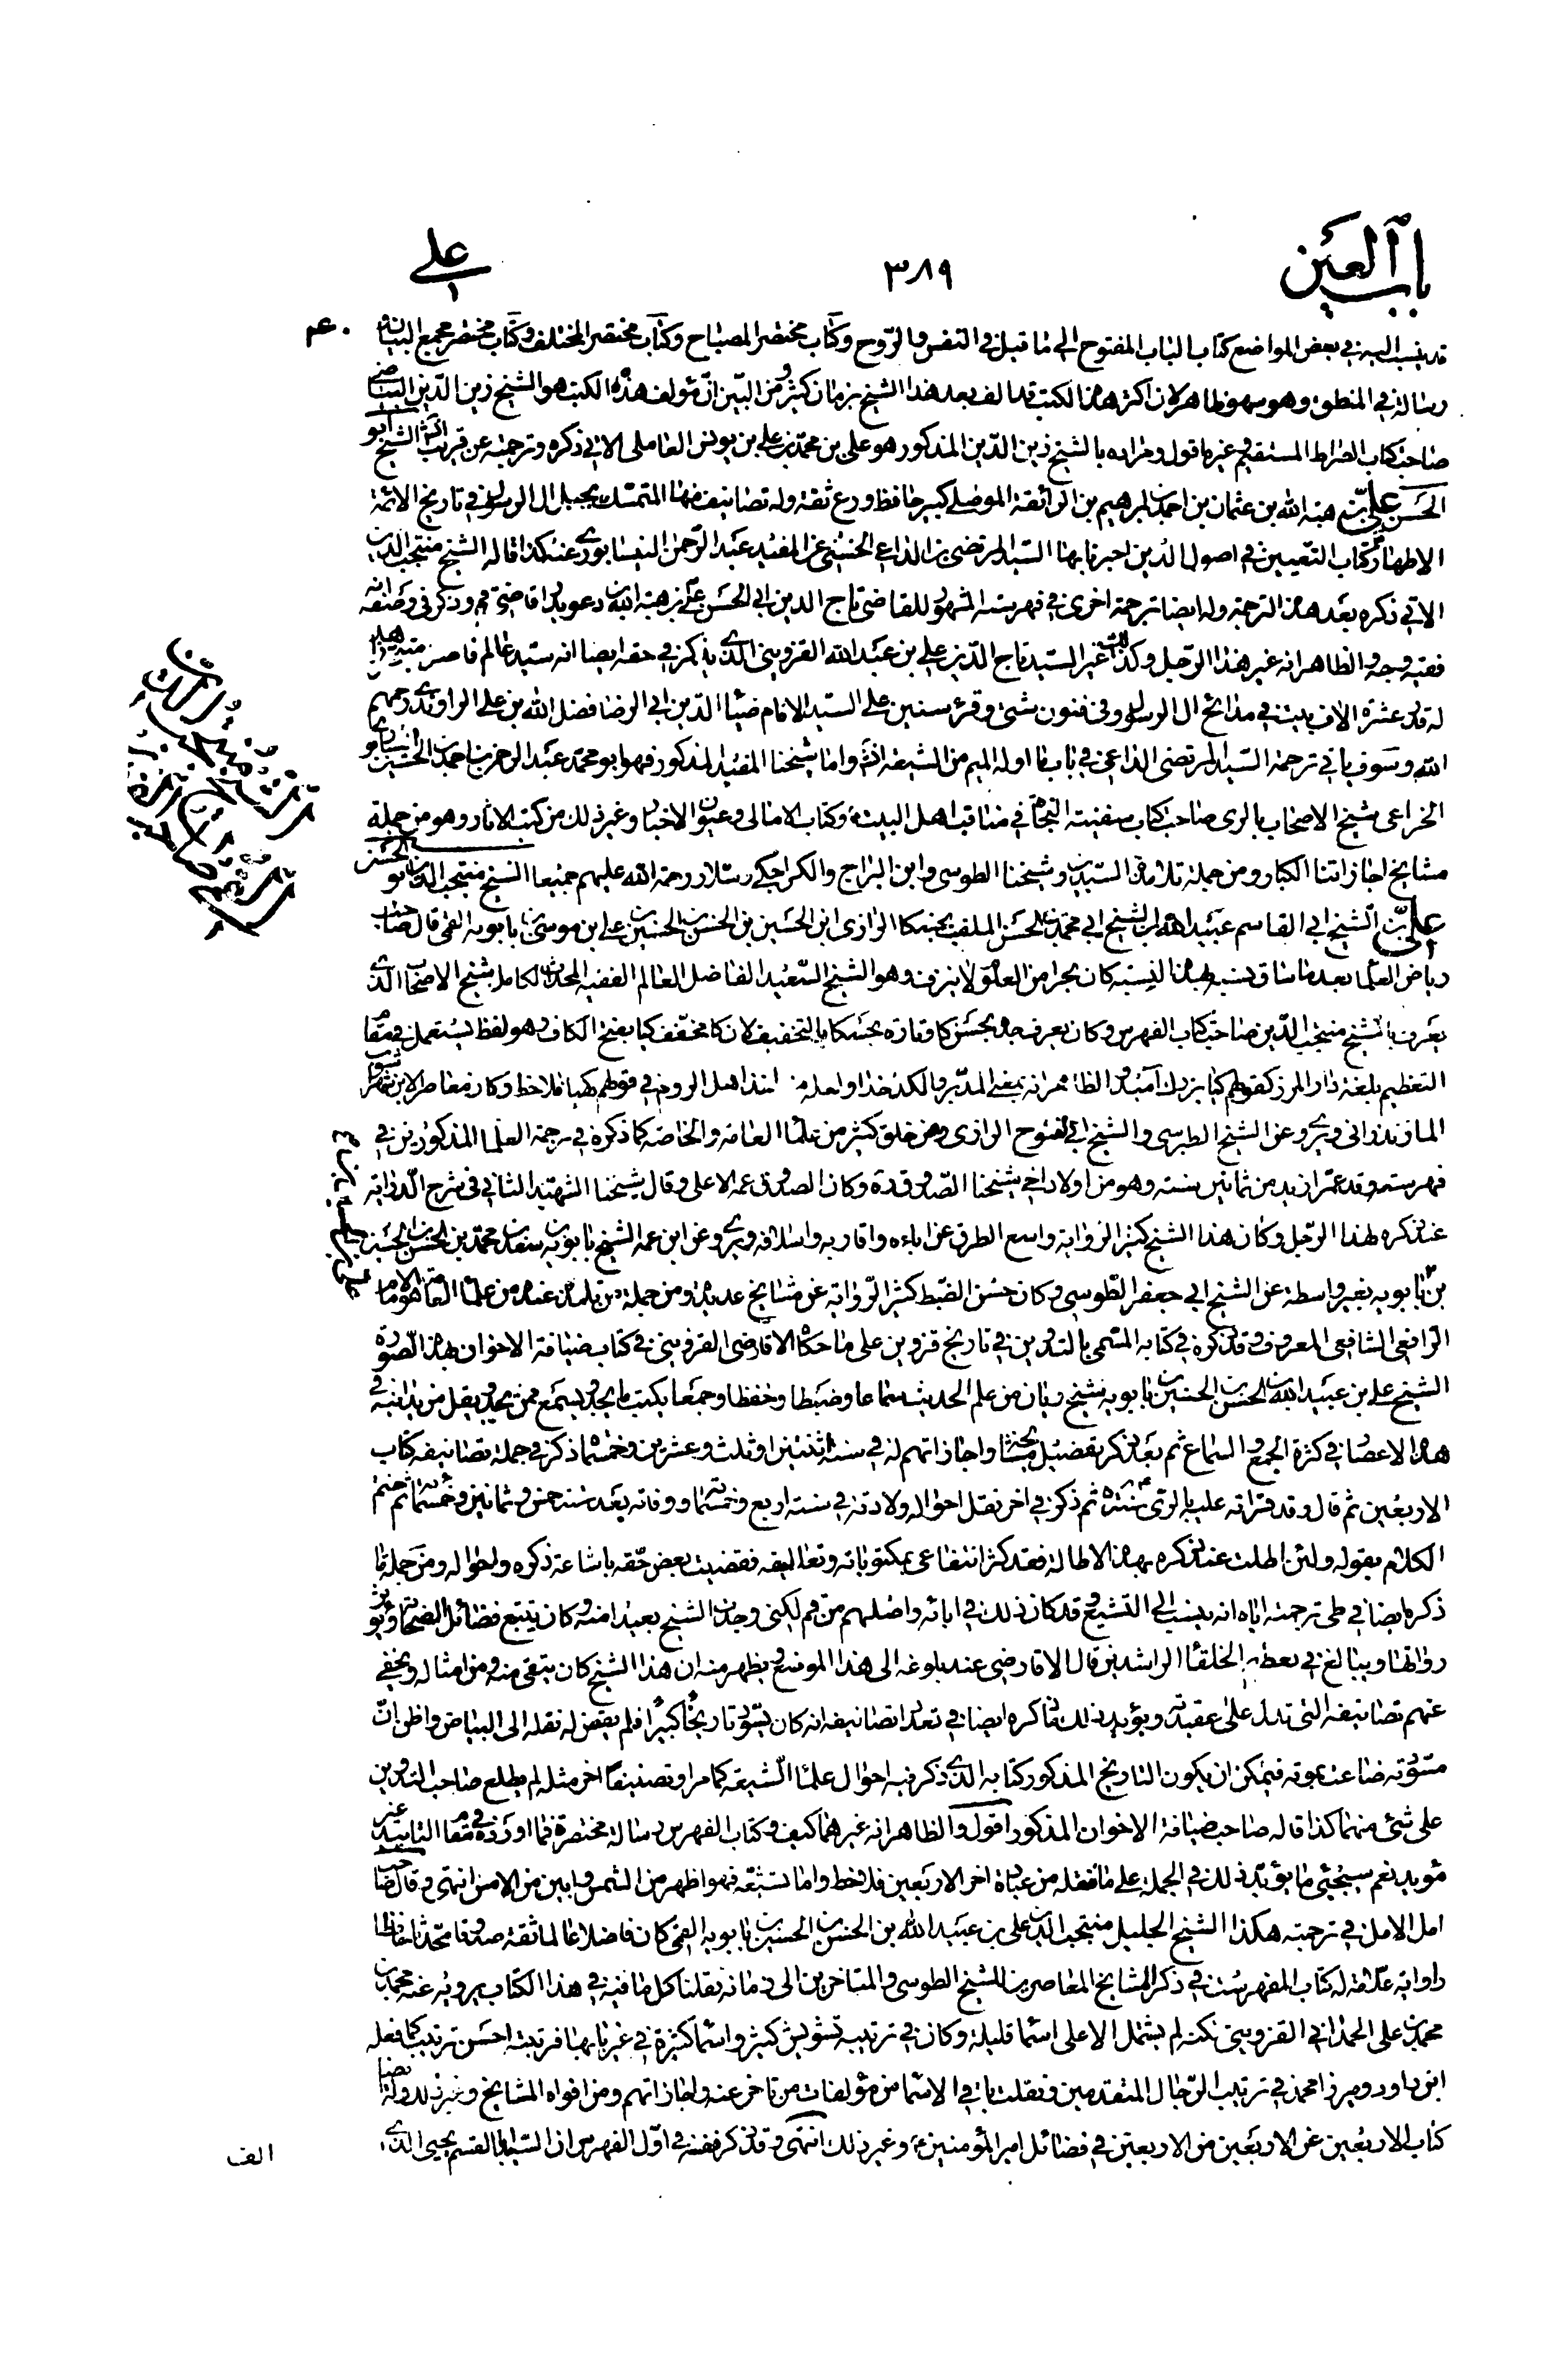 باب العين
٣٨٩
علي
قد ينسب اليه في بعض المواضع كتاب الباب المفتوح الى ما قيل في النفس والروح وكتاب مختصر المصباح وكتاب مختصر المختلف وكتاب مختصر مجمع البيان
رسالة في المنطق وهو سهو ظاهر لان اكثر هذه الكتب قد الف بعد هذا الشيخ بزمان كثير ومن البين ان مؤلف هذه الكتب هو الشيخ زين الدين البياضي
صاحب كتاب الصراط المستقيم وغيره اقول ومراده بالشيخ زين الدين المذكور هو علي بن محمد بن علي بن يونس العاملي الاتي ذكره وترجمته عن قريب انش الشيخ ابو
الحسن علي بن هبة الله بن عثمان بن احمد بن ابرهيم بن الرائقة الموصلي كبير حافظ ورع ثقة وله تصانيف منها المتمسك بحبل ال الرسول في تاريخ الائمة
الاطهار كتاب التعيين في اصول الدين اخبرنا بها السيد المرتضى بن الداعي الحسني عن المفيد عبد الرحمن النيسابوري عنه كذا قاله الشيخ منتجب الدين
الاتي ذكره بعد هذه الترجمة وله ايضا ترجمة اخرى في فهرسته المشهور للقاضي تاج الدين ابي الحسن علي بن هبة الله بن دعويدار قاضي قم وذكر في وصفه انه
فقيه وجه والظاهر انه غير هذا الرجل وكذلك غير السيد تاج الدين علي بن عبد الله القزويني الذي يذكر في حقه ايضا انه سيد عالم
له قدر عشرة الاف بيت في مدائح ال الرسول وفي فنون شتى وقرء سنين على السيد الامام ضياء الدين ابي الرضا فضل الله بن علي الراوندي رحمهم
الله وسوف ياتي ترجمة السيد المرتضى الداعي في باب ما اوله الميم من الشيعة انش واما شيخنا المفيد المذكور فهو ابو محمد عبد الرحمن بن احمد بن الحسين النيسابوري
الخزاعي شيخ الاصحاب بالري صاحب كتاب سفينة النجاة في مناقب اهل البيت ع وكتاب الامالي وعيون الاخبار وغير ذلك من كتب الاثار وهو من جملة
مشايخ اجازاتنا الكبار ومن جملة تلامذة السيدين وشيخنا الطوسي وابن البراج والكراجكي وسلار رحمة الله عليهم جميعا الشيخ منتجب الدين ابو الحسن
علي بن الشيخ ابي القاسم عبيد الله بن الشيخ ابي محمد الحسن الملقب بحسكا الرازي ابن الحسين بن الحسن بن الحسين بن علي بن موسى بن بابويه القمي قال صاحب
رياض العلماء بعد ما ساق نسبه بهذه النسبة كان بحرا من العلوم لا ينزف وهو الشيخ السعيد الفاضل العالم الفقيه المحدث الكامل شيخ الاصحاب الذي
يعرف بالشيخ منتجب الدين صاحب كتاب الفهرس وكان يعرف جده بحسن كا وتارة بحسكا بالتخفيف لان كا مخفف كيا بفتح الكاف وهو لفظ يستعمل في مقام
التعظيم بلغة دار المرز كقولهم كيا بزرك اميد والظاهر انه بمعنى المدبر والكدخدا ولعله عند اهل الروم في قولهم كهيا فلاحظ وكان معاصرا لابن شهر اشوب
المازندراني ويروي عن الشيخ الطبرسي والشيخ ابي الفتوح الرازي وعن خلق كثير من علماء العامة والخاصة كما ذكره في ترجمة العلماء المذكورين في
فهرسته وقد عمر ازيد من ثمانين سنة وهو من اولاد اخي شيخنا الصدوق قده وكان الصدوق عمه الاعلى وقال شيخنا الشهيد الثاني في شرح الدراية
عند ذكره لهذا الرجل وكان هذا الشيخ كثير الرواية واسع الطرق عن اباءه واقاربه واسلافه ويروي عن ابن عمه الشيخ بابويه بن سعد بن محمد بن الحسن بن الحسين
بن بابويه بغير واسطة عن الشيخ ابي جعفر الطوسي وكان حسن الضبط كثير الرواية عن مشايخ عديدة ومن جملة من تلمذ عنده من علماء العامة هو الامام
الرافعي الشافعي المعروف وقد ذكره في كتابه المسمى بالتدوين في تاريخ قزوين على ما حكاه الاقا رضي القزويني في كتاب ضيافة الاخوان بهذه الصورة
الشيخ علي بن عبيد الله بن الحسن بن الحسين بن بابويه شيخ ريان من علم الحديث سماعا وضبطا وحفظا وجمعا يكتب ما يجد ويسمع ممن يجد ويقل من يدانيه في
هذه الاعصار في كثرة الجمع والسماع ثم بعد ذكر تفصيل مشايخه واجازاتهم له في سنة اثنتين او ثلث وعشرين وخمسمائة ذكر في جملة تصانيفه كتاب
الاربعين ثم قال وقد قراته عليه بالري سنة ثم ذكر في اخر نقل احواله ولادته في سنة اربع وخمسمائة ووفاته بعد سنة خمس وثمانين وخمسمائة ثم ختم
الكلام بقوله ولئن اطلت عند ذكره بهذه الاطالة فقد كثر انتفاعي بمكتوباته وتعاليقه فقضيت بعض حقه باشاعة ذكره واحواله ومن جملة ما
ذكره ايضا في طي ترجمته اياه انه ينسب الى التشيع وقد كان ذلك في ابائه واصلهم من قم لكني وجدت الشيخ بعيدا منه وكان يتتبع فضائل الصحابة ويؤثر
رواتها ويبالغ في تعظيم الخلفاء الراشدين قال الاقا رضي عند بلوغه الى هذا الموضع ويظهر منه ان هذا الشيخ كان يتقي منه ومن امثاله ويخفي
عنهم تصانيفه التي تدل على عقيدته ويؤيد ذلك ما ذكره ايضا في تعداد تصانيفه انه كان يسود تاريخا كبيرا فلم يقض له نقله الى البياض واظن ان
مسودته ضاعت بموته فيمكن ان يكون التاريخ المذكور كتابه الذي ذكر فيه احوال علماء الشيعة كما مر او تصنيفا اخر مثله لم يطلع صاحب التدوين
على شئ منهما كذا قاله صاحب ضيافة الاخوان المذكور اقول والظاهر انه غيرهما كيف وكتاب الفهرس رسالة مختصرة فما اورده في مقام التاييد غير
مؤيد نعم سيجئ ما يؤيد ذلك في الجملة على ما نقله من عبارة اخر الاربعين فلاحظ واما تشيعه فهو اظهر من الشمس وابين من الامس انتهى وقال صاحب
امل الامل في ترجمته هكذا الشيخ الجليل منتجب الدين علي بن عبيد الله بن الحسن بن الحسين بن بابويه القمي كان فاضلا عالما ثقة صدوقا محدثا حافظا
راوية علامة له كتاب الفهرست في ذكر المشايخ المعاصرين للشيخ الطوسي والمتاخرين الى زمانه نقلنا كل ما فيه في هذا الكتاب يرويه عنه محمد بن
محمد بن علي الحمداني القزويني لكنه لم يشتمل الا على اسماء قليلة وكان في ترتيبه تشويش كثير واسماء كثيرة في غير بابها فرتبته احسن ترتيب كما فعله
ابن داود وميرزا محمد في ترتيب الرجال المتقدمين ونقلت باقي الاسماء من مؤلفات من تاخر عنه واجازاتهم ومن افواه المشايخ وغير ذلك وله ايضا
كتاب الاربعين عن الاربعين من الاربعين في فضائل امير المؤمنين ع وغير ذلك انتهى وقد ذكر نفسه في اول الفهرس ان السيد ابا القسم يحيى الذي
الف